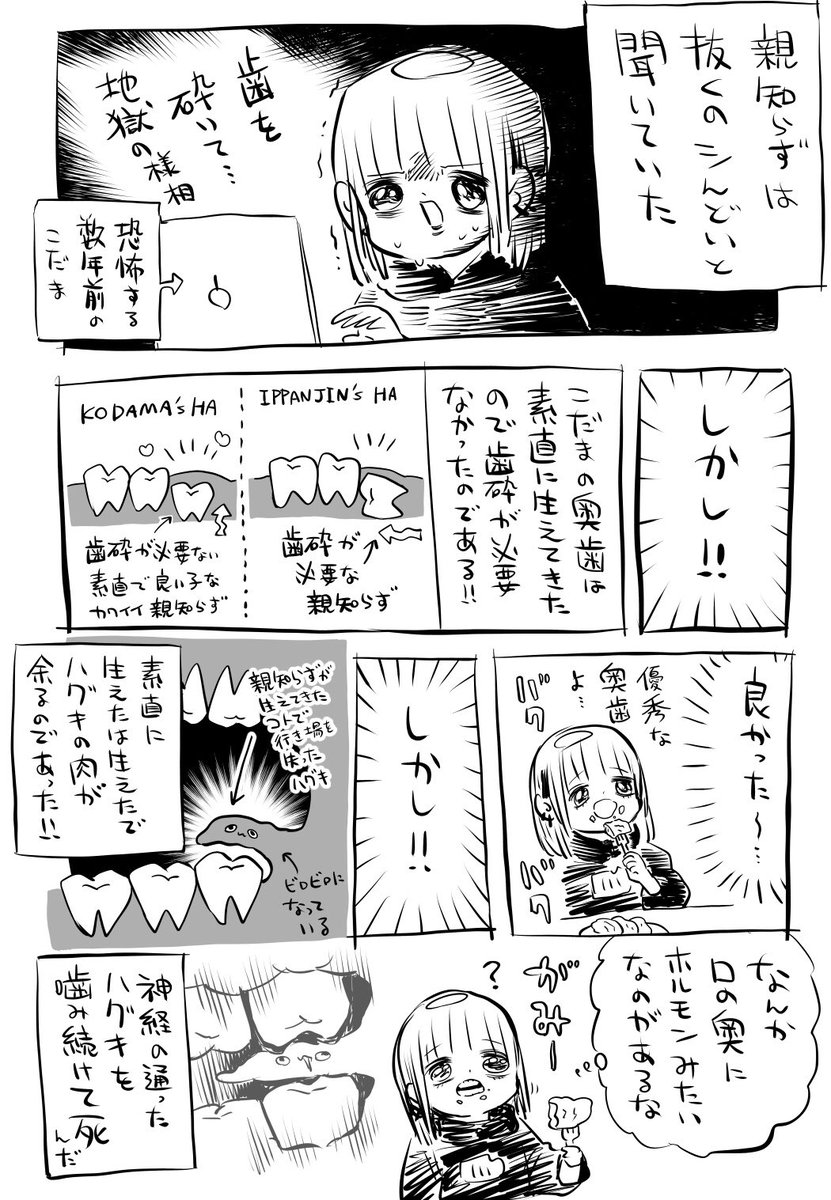 親知らずは
抜くのシんどいと
聞いていた
歯を
砕いて…
地獄の様相
恐怖する
数年前の
こだま
しかし!!
こだまの奥歯は
素直に生えてきた
ので歯砕が必要
なかったのである!!
IPPANJIN's HA
歯砕が
必要な
親知らず
KODAMA's HA
歯砕が必要ない
素直で良い子な
カワイイ親知らず
良かった〜…
優秀な
奥歯
よ…
バク
バク
しかし!!
親知らずが
生えてきた
コトで
行き場を
失った
ハグキ
ビロビロに
なって
いる
素直に
生えたは生えたで
ハグキの肉が
余るのであった!!
なんか
口の奥に
ホルモンみたい
なのがあるな
がみー
?
神経の通った
ハグキを
噛み続けて死
んだ